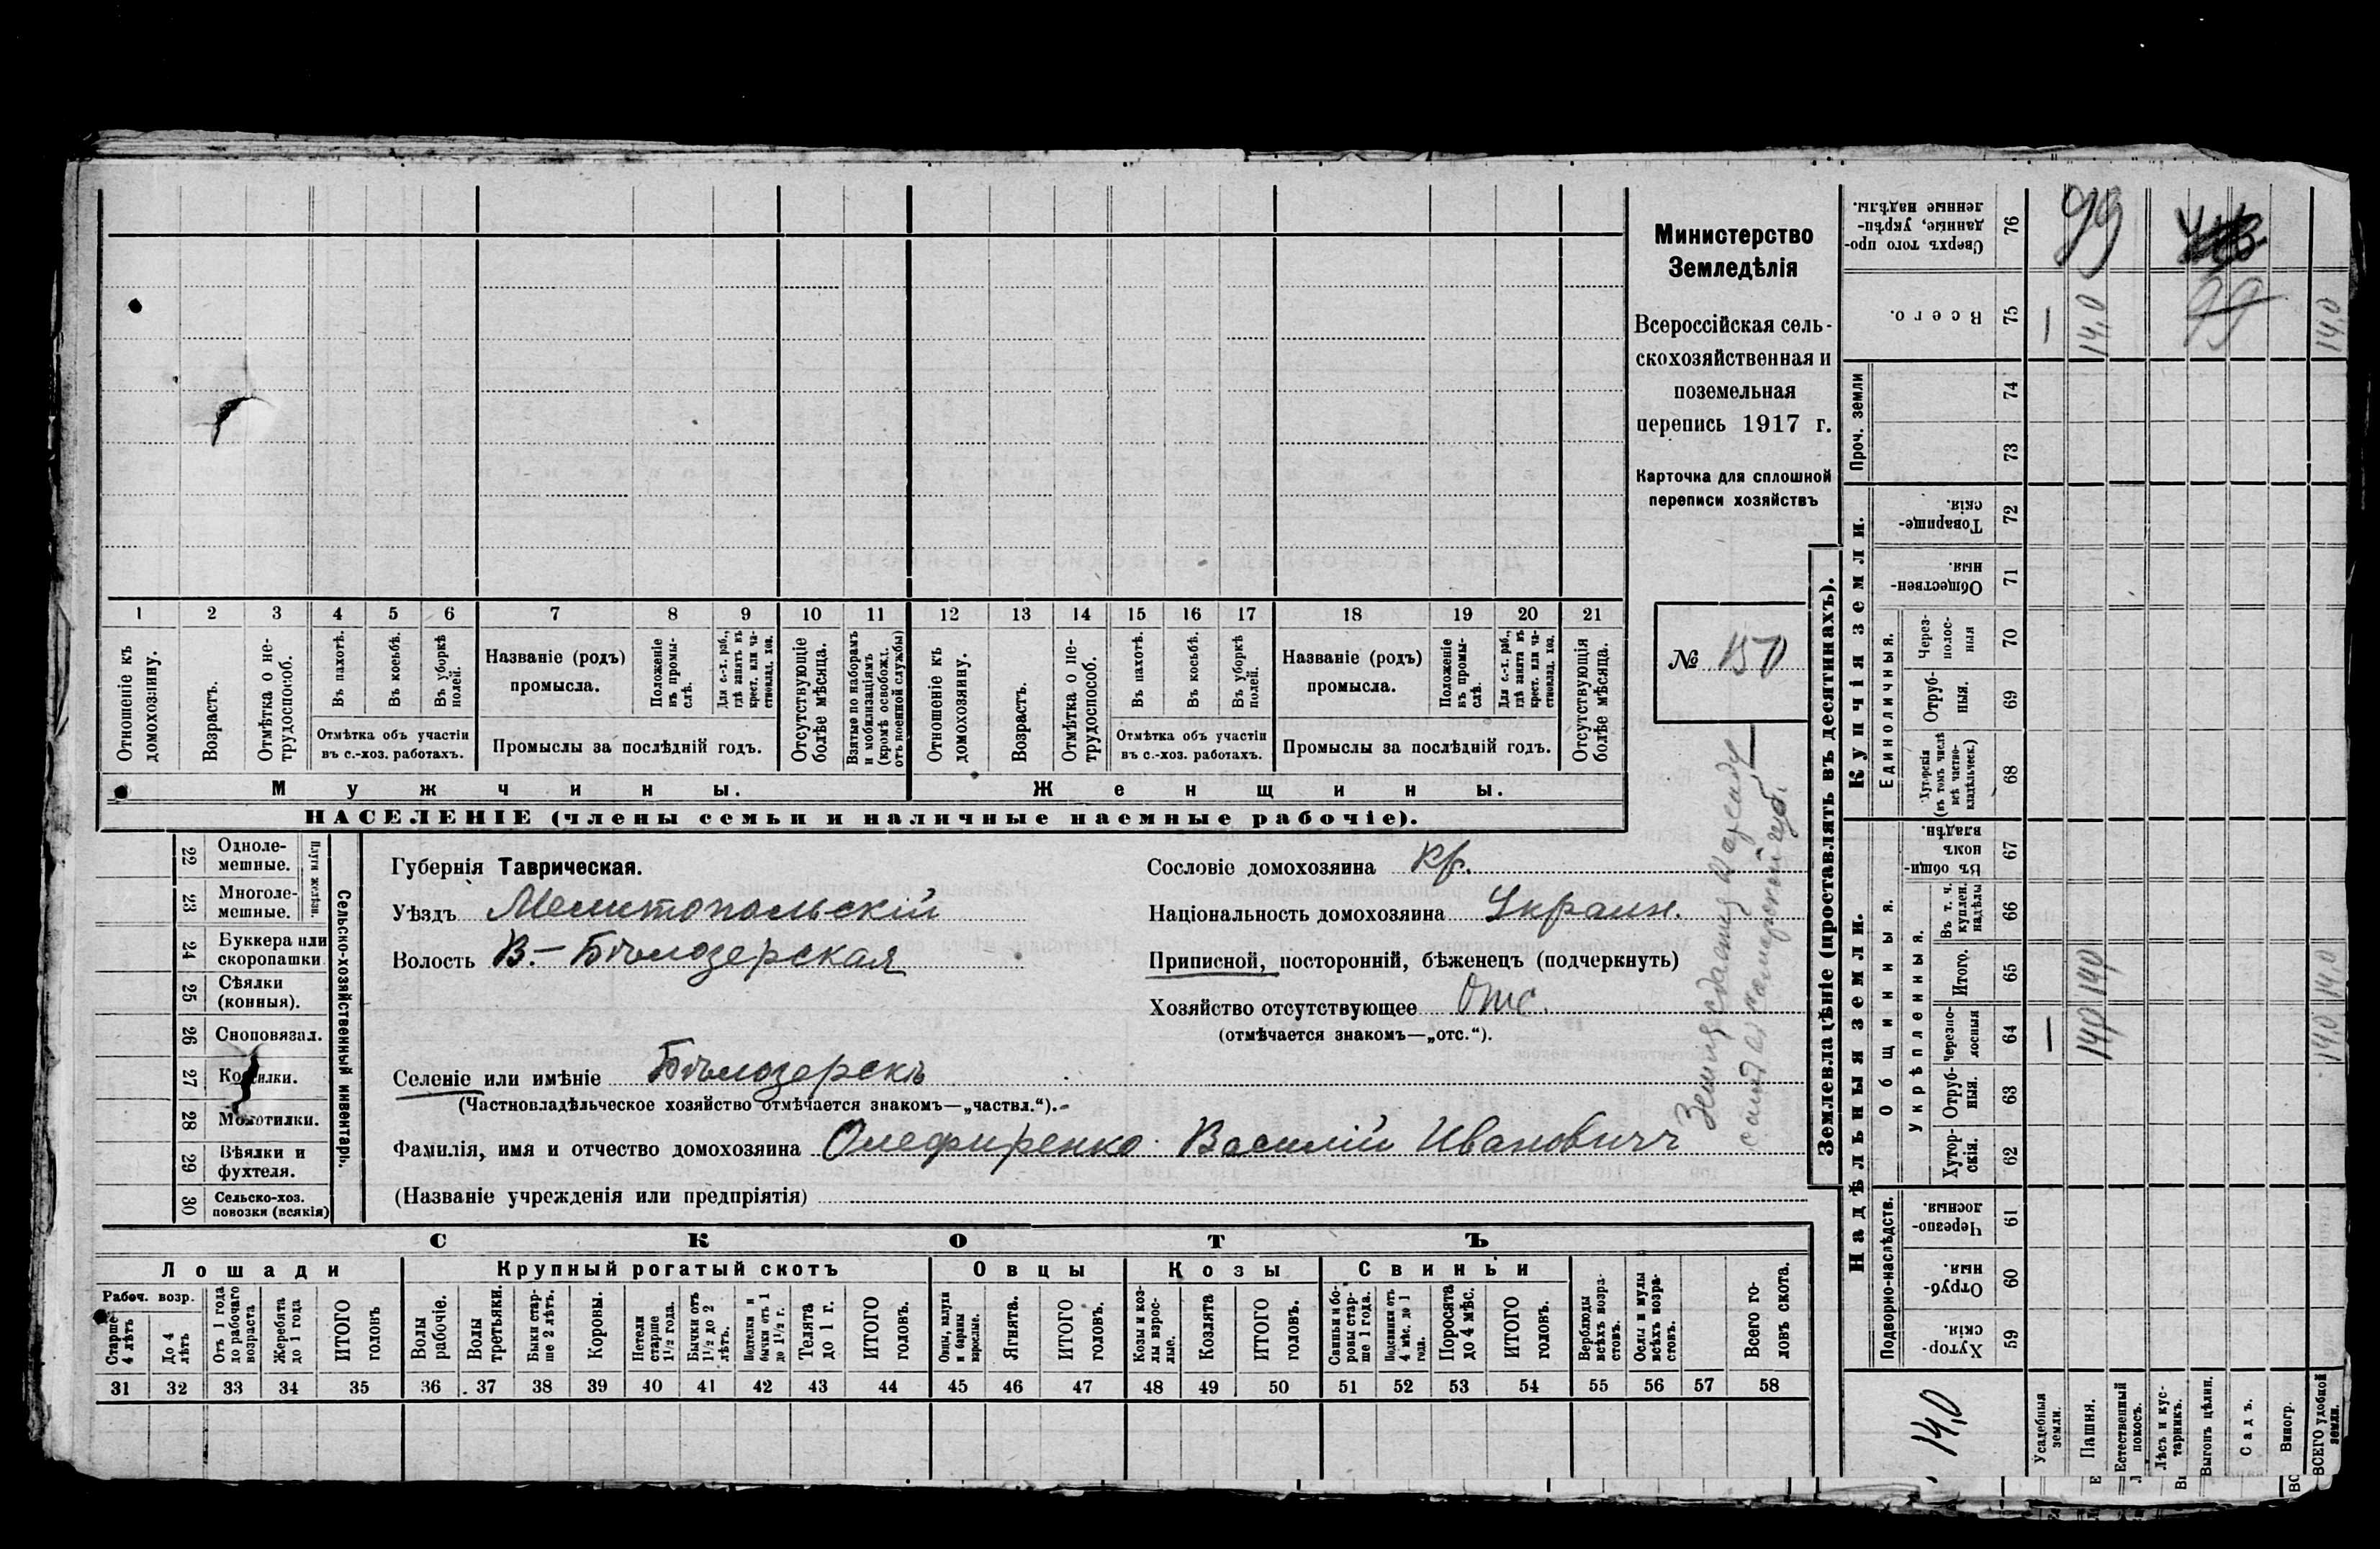 Министерство
Земледѣлія
Всероссійская сель-
скохозяйственная и
поземельная
перепись 1917 г.
Карточка для сплошной
переписи хозяйствъ
№ 150
1 2 3 4 5 6 7 8 9 10 11 12 13 14 15 16 17 18 19 20 21
Отношеніе къ домохозяину.
Возрастъ.
Отмѣтка о не-трудоспособ.
Въ пахотѣ.
Въ косьбѣ.
Въ уборкѣ полей.
Отмѣтка объ участіи
въ с.-хоз. работахъ.
Названіе (родъ)
промысла.
Положеніе въ промы-слѣ.
Для с.-х. раб., гдѣ занятъ въ крест. или ча-стновлад. хоз.
Промыслы за послѣдній годъ.
Отсутствующіе болѣе мѣсяца.
Взятые по наборамъ и мобилизаціямъ (кромѣ освобожд. отъ военной службы)
Отношеніе къ домохозяину.
Возрастъ.
Отмѣтка о не-трудоспособ.
Въ пахотѣ.
Въ косьбѣ.
Въ уборкѣ полей.
Отмѣтка объ участіи
въ с.-хоз. работахъ.
Названіе (родъ)
промысла.
Положеніе въ промы-слѣ.
Для с.-х. раб., гдѣ занята въ крест. или ча-стновлад. хоз.
Промыслы за послѣдній годъ.
Отсутствующія болѣе мѣсяца.
Мужчины.
Женщины.
НАСЕЛЕНІЕ (члены семьи и наличные наемные рабочіе).
Сельско-хозяйственный инвентарь.
Плуги желѣзн.
22 Однолемешные.
23 Многолемешные.
24 Буккера или скоропашки
25 Сѣялки (конныя).
26 Сноповязал.
27 Косилки.
28 Молотилки.
29 Вѣялки и фухтеля.
30 Сельско-хоз. повозки (всякія)
Губернія Таврическая.
Уѣздъ Мелитопольскій
Волость В.-Бѣлозерская
Селеніе или имѣніе Бѣлозерскъ
(Частновладѣльческое хозяйство отмѣчается знакомъ—„частвл.“).
Фамилія, имя и отчество домохозяина Олефиренко Василій Ивановичъ
(Названіе учрежденія или предпріятія)
Сословіе домохозяина кр.
Національность домохозяина Украин.
Приписной, посторонній, бѣженецъ (подчеркнуть)
Хозяйство отсутствующее Отс.
(отмѣчается знакомъ—„отс.“).
СКОТЪ
Лошади
Крупный рогатый скотъ
Овцы
Козы
Свиньи
Рабоч. возр.
Старше 4 лѣтъ
До 4 лѣтъ
Отъ 1 года до рабочаго возраста
Жеребята до 1 года
ИТОГО головъ
Волы рабочіе.
Волы третьяки.
Быки стар-ше 2 лѣтъ.
Коровы.
Нетели старше 1½ года.
Бычки отъ 1½ до 2 лѣтъ.
Подтелки и бычки отъ 1 до 1½ г.
Телята до 1 г.
ИТОГО головъ.
Овцы, валухи и бараны взрослые.
Ягнята.
ИТОГО головъ.
Козы и коз-лы взрос-лые.
Козлята
ИТОГО головъ.
Свиньи и бо-ровы стар-ше 1 года.
Подсвинки отъ 4 мѣс. до 1 года.
Поросята до 4 мѣс.
ИТОГО головъ.
Верблюды всѣхъ возра-стовъ.
Ослы и мулы всѣхъ возра-стовъ.
Всего го-ловъ скота.
31 32 33 34 35 36 37 38 39 40 41 42 43 44 45 46 47 48 49 50 51 52 53 54 55 56 57 58
Землевладѣніе (проставлять въ десятинахъ).
Купчія земли.
Надѣльныя земли.
Сверхъ того про-данные, укрѣп-ленные надѣлы. 76 99
Всего. 75 — 14,0 99 14,0
Проч. земли
74
73
Товарище-скія. 72
Обществен-ныя. 71
Единоличныя.
Через-полос-ныя 70
Отруб-ныя. 69
Хуторскія (въ томъ числѣ всѣ частно-владѣльческ.) 68
Общинныя.
Въ общин-номъ владѣн. 67
Укрѣпленныя.
Въ т. ч. куплен. надѣлы 66
Итого. 65 14,0 14,0
Черезпо-лосныя 64 — 14,0 14,0
Отруб-ныя. 63
Хутор-скія. 62
Подворно-наслѣдств.
Черезпо-лосныя. 61
Отруб-ныя. 60
Хутор-скія. 59
14,0
Усадебныя земли.
Пашня.
Естественный покосъ.
Лѣсъ и кус-тарникъ.
Выгонъ цѣлин.
Садъ.
Виногр.
ВСЕГО удобной земли.